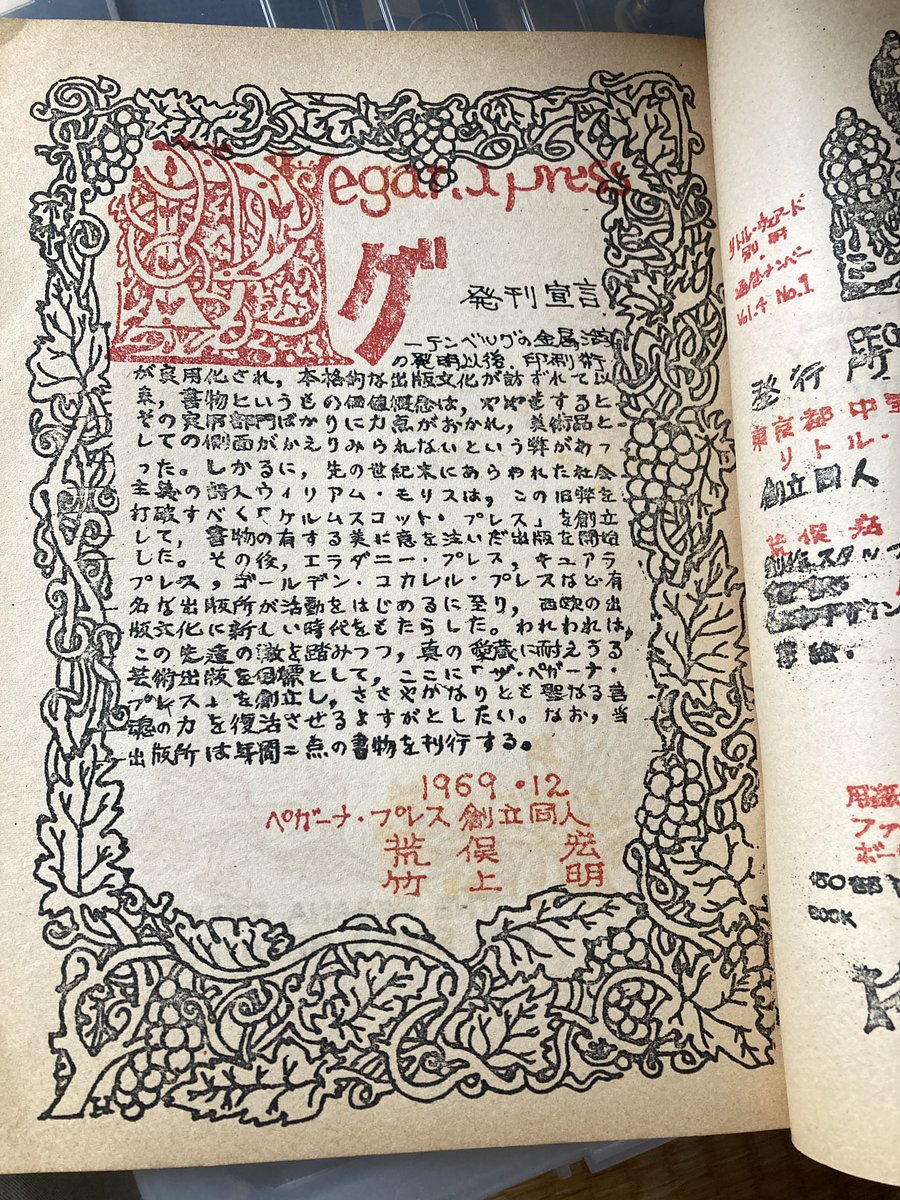 Pegana press
発刊宣言
グーテンベルグの金属活字
の発明以後，印刷術
が実用化され，本格的な出版文化が訪ずれて以
来，書物というもの価値概念は，ややもすると
その実用部門ばかりに力点がおかれ，美術品と
しての側面がかえりみられないという弊があっ
った。しかるに，先の世紀末にあらわれた社会
主義の詩人ウィリアム・モリスは，この旧弊を
打破すべく「ケルムスコット・プレス」を創立
して，書物の有する美に意を注いだ出版を開始
した。その後，エラグニー・プレス，キュアラ
プレス，ゴールデン・コカレル・プレスなど有
名な出版所が活動をはじめるに至り，西欧の出
版文化に新しい時代をもたらした。われわれは，
この先達の轍を踏みつつ，真の愛蔵に耐えうる
芸術出版を目標として，ここに「ザ・ペガーナ・
プレス」を創立し，ささやかなりとも聖なる書
魂の力を復活させるよすがとしたい。なお，当
出版所は年間二点の書物を刊行する。
1969・12
ペガーナ・プレス創立同人
荒俣 宏
竹上 明
リトル・ウィアード
別冊
通巻ナンバー
Vol.4 No.1
発行所
東京都中
リトル・
創立同人
荒俣宏
創作スタッフ
デザイン
書絵・
用紙
ファ
ボー
150部
BOOK